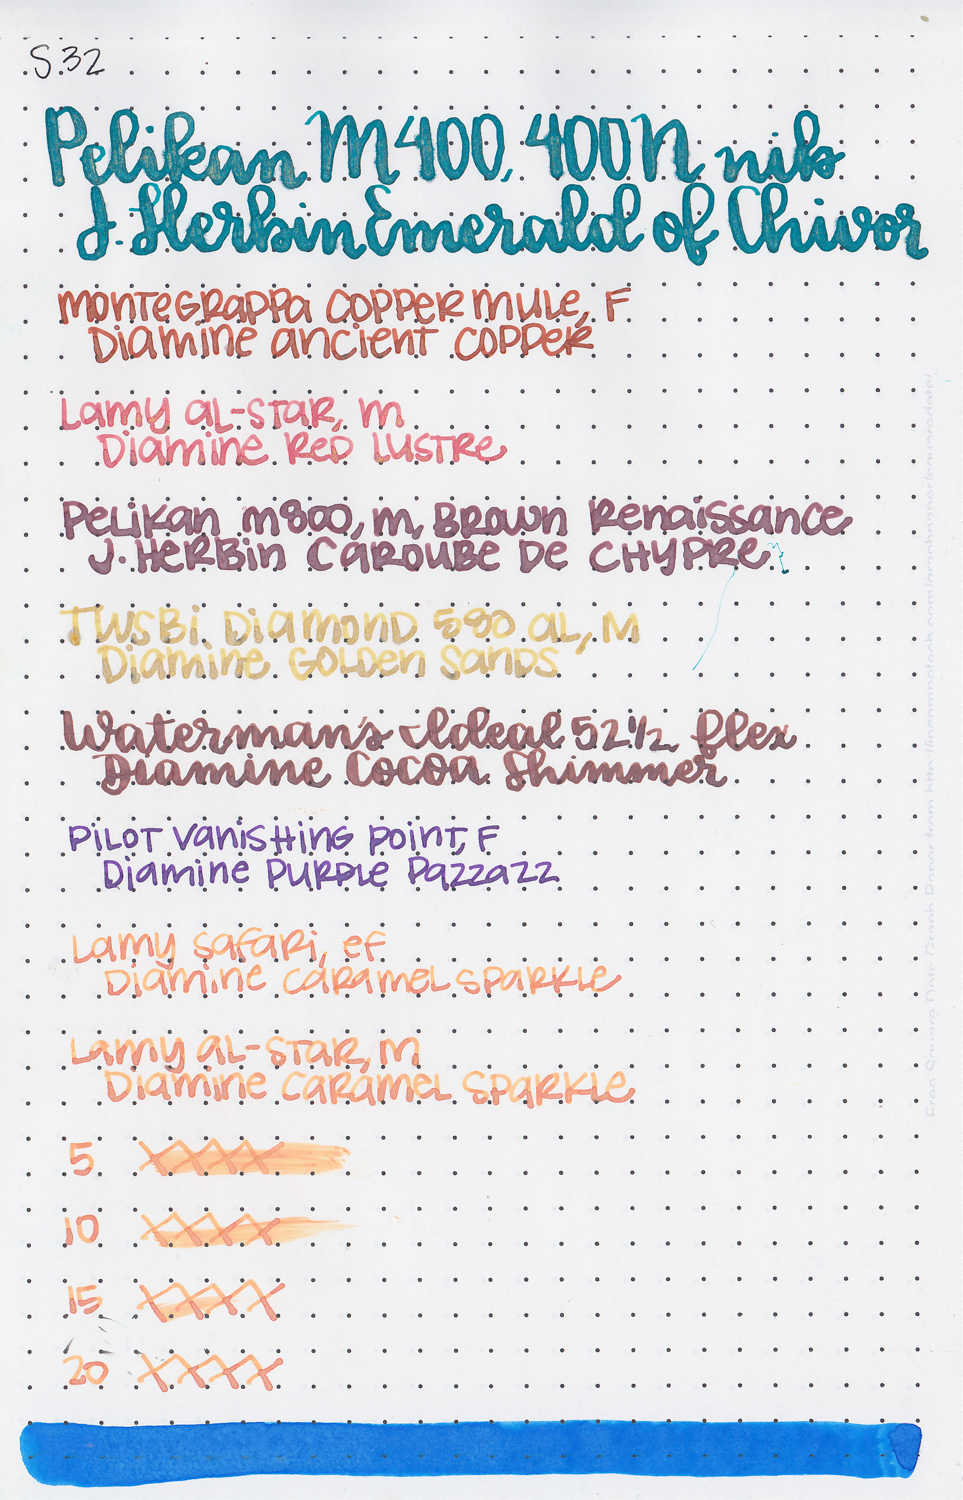 S.32
Pelikan M400, 400N nib
J. Herbin Emerald of Chivor
Montegrappa Copper Mule, F
Diamine Ancient Copper
Lamy Al-Star, M
Diamine Red Lustre
Pelikan M800, M, Brown Renaissance
J. Herbin Caroube de Chypre
TWSBI Diamond 580 AL, M
Diamine Golden Sands
Waterman's Ideal 52 1/2 flex
Diamine Cocoa Shimmer
Pilot Vanishing Point, F
Diamine Purple Pazzazz
Lamy Safari, EF
Diamine Caramel Sparkle
Lamy Al-Star, M
Diamine Caramel Sparkle
5 XXXX
10 XXXX
15 XXXX
20 XXXX